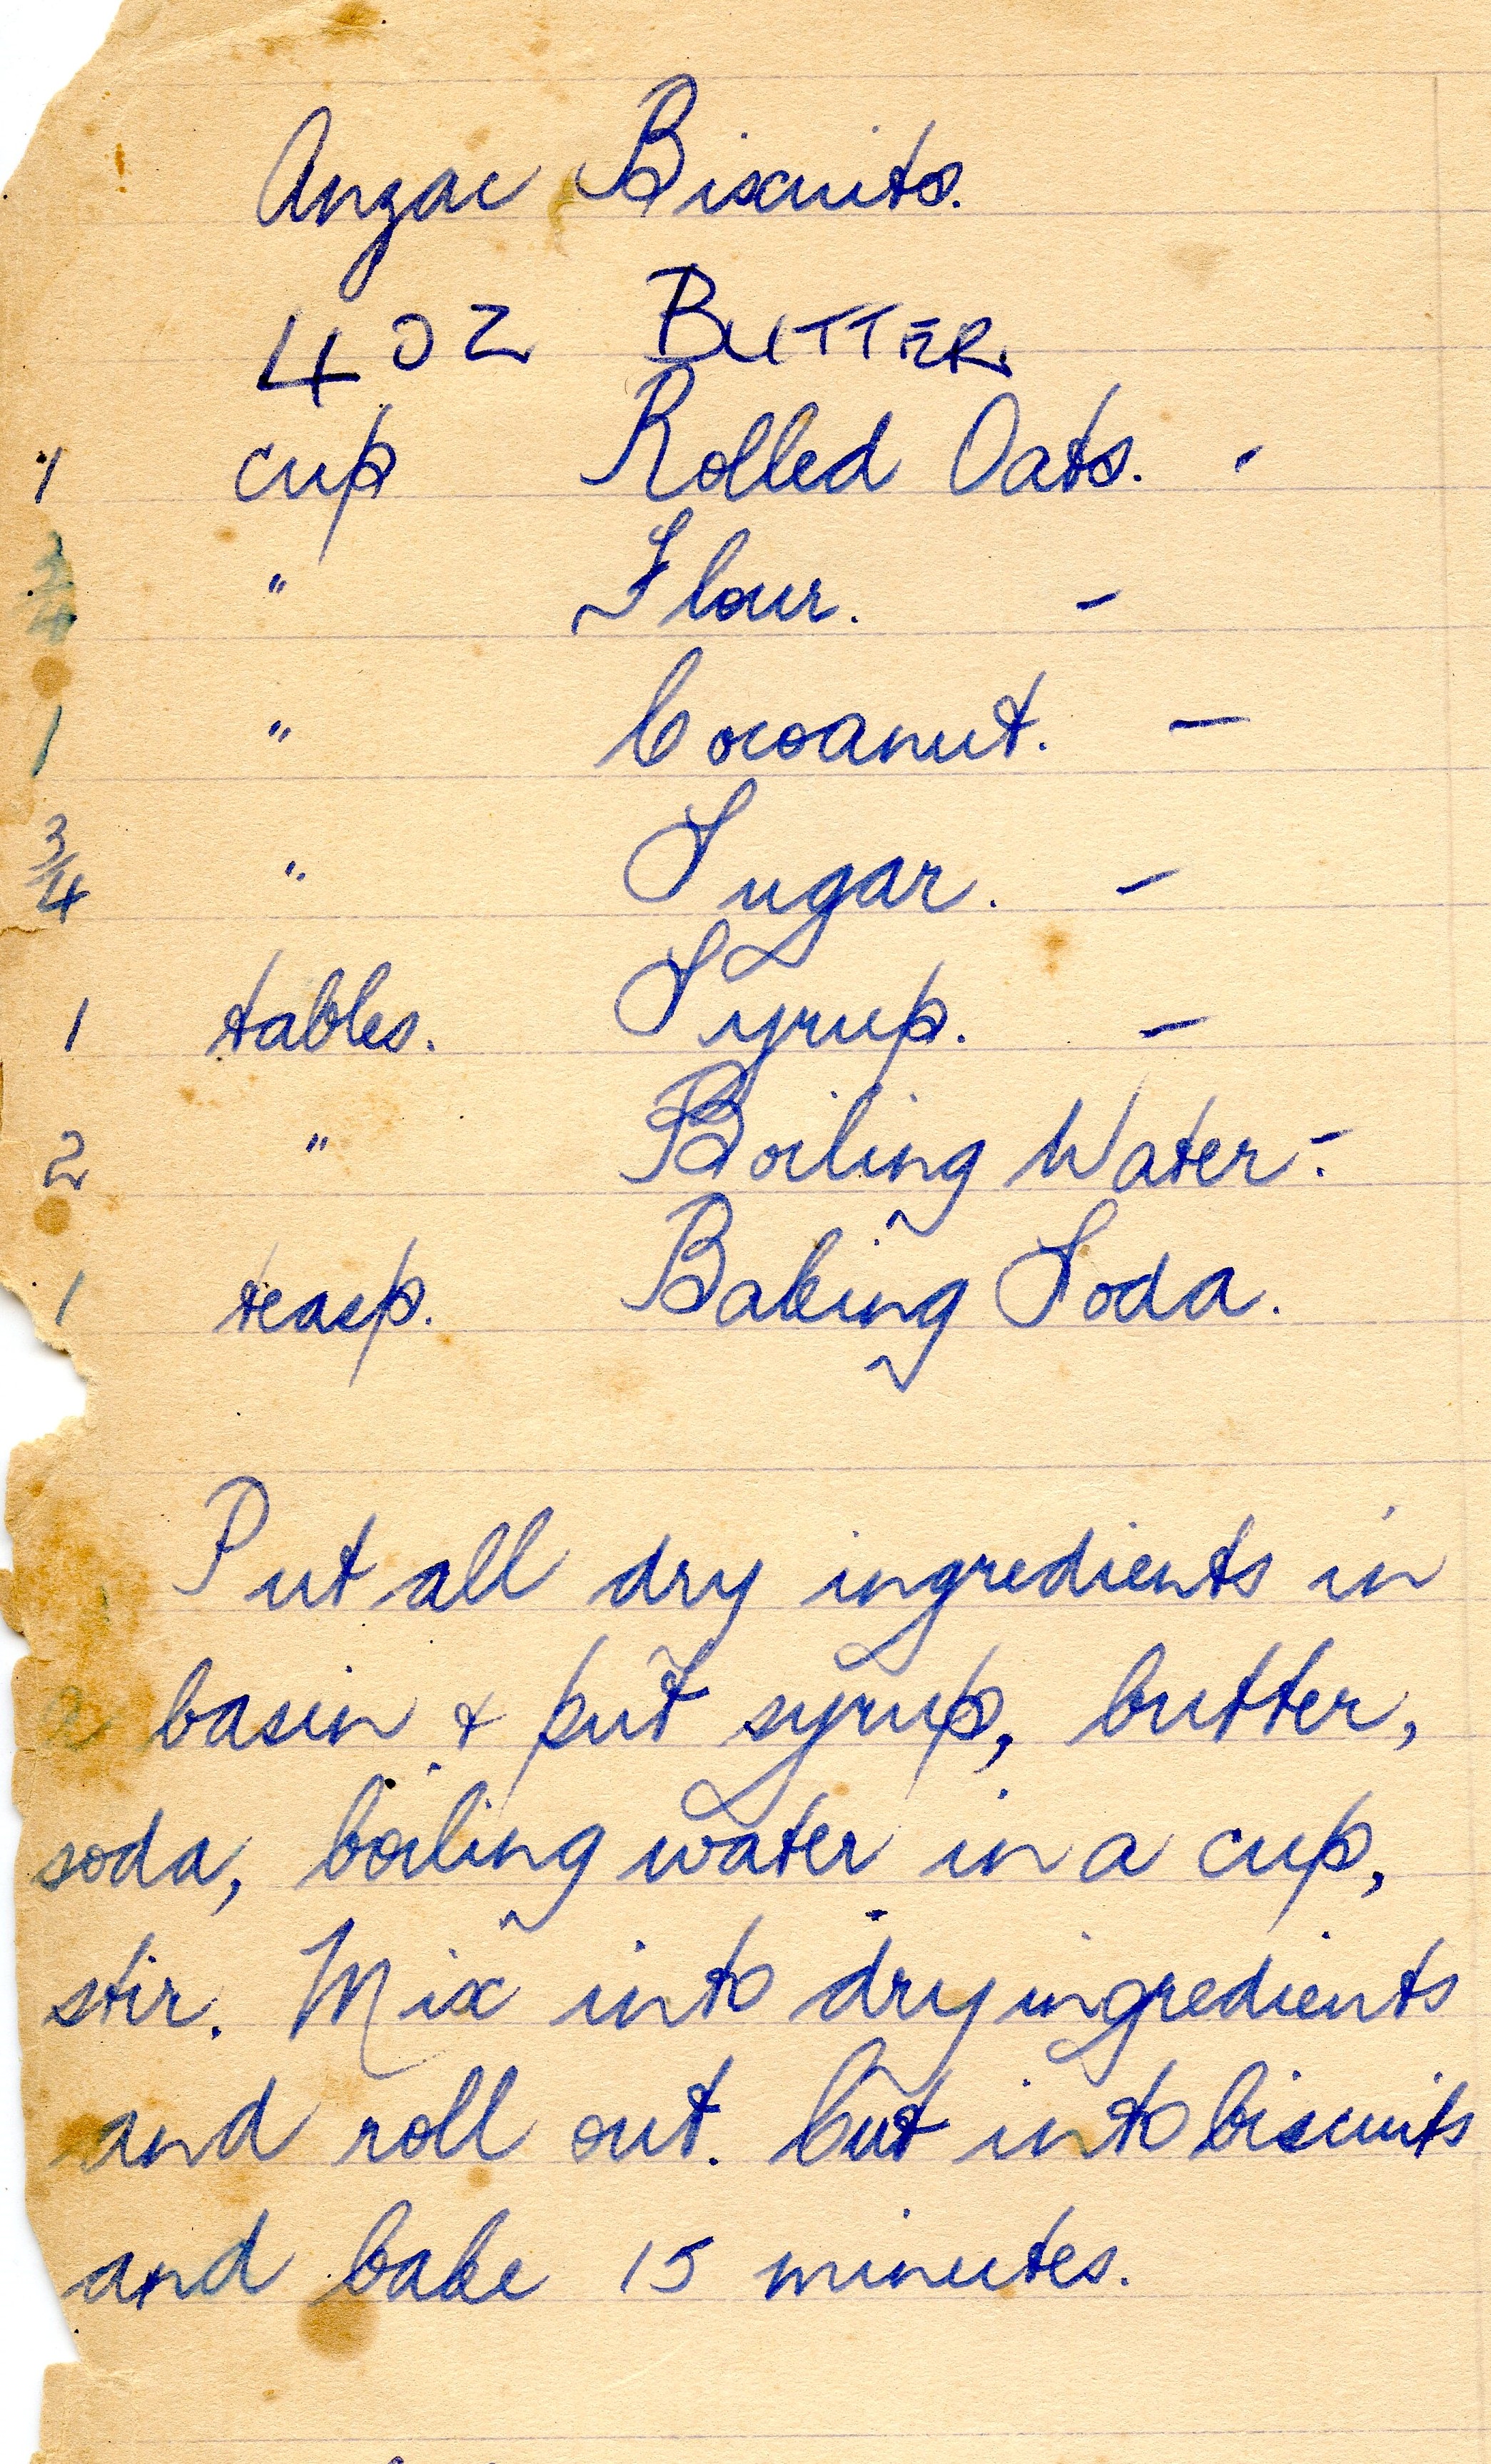 Anzac Biscuits.
4 oz BUTTER
1 cup Rolled Oats. -
3/4 " Flour. -
1 " Cocoanut. -
3/4 " Sugar. -
1 tables. Syrup. -
2 " Boiling Water. -
1 teasp. Baking Soda.
Put all dry ingredients in
a basin & put syrup, butter,
soda, boiling water in a cup,
stir. Mix into dry ingredients
and roll out. Cut into biscuits
and bake 15 minutes.